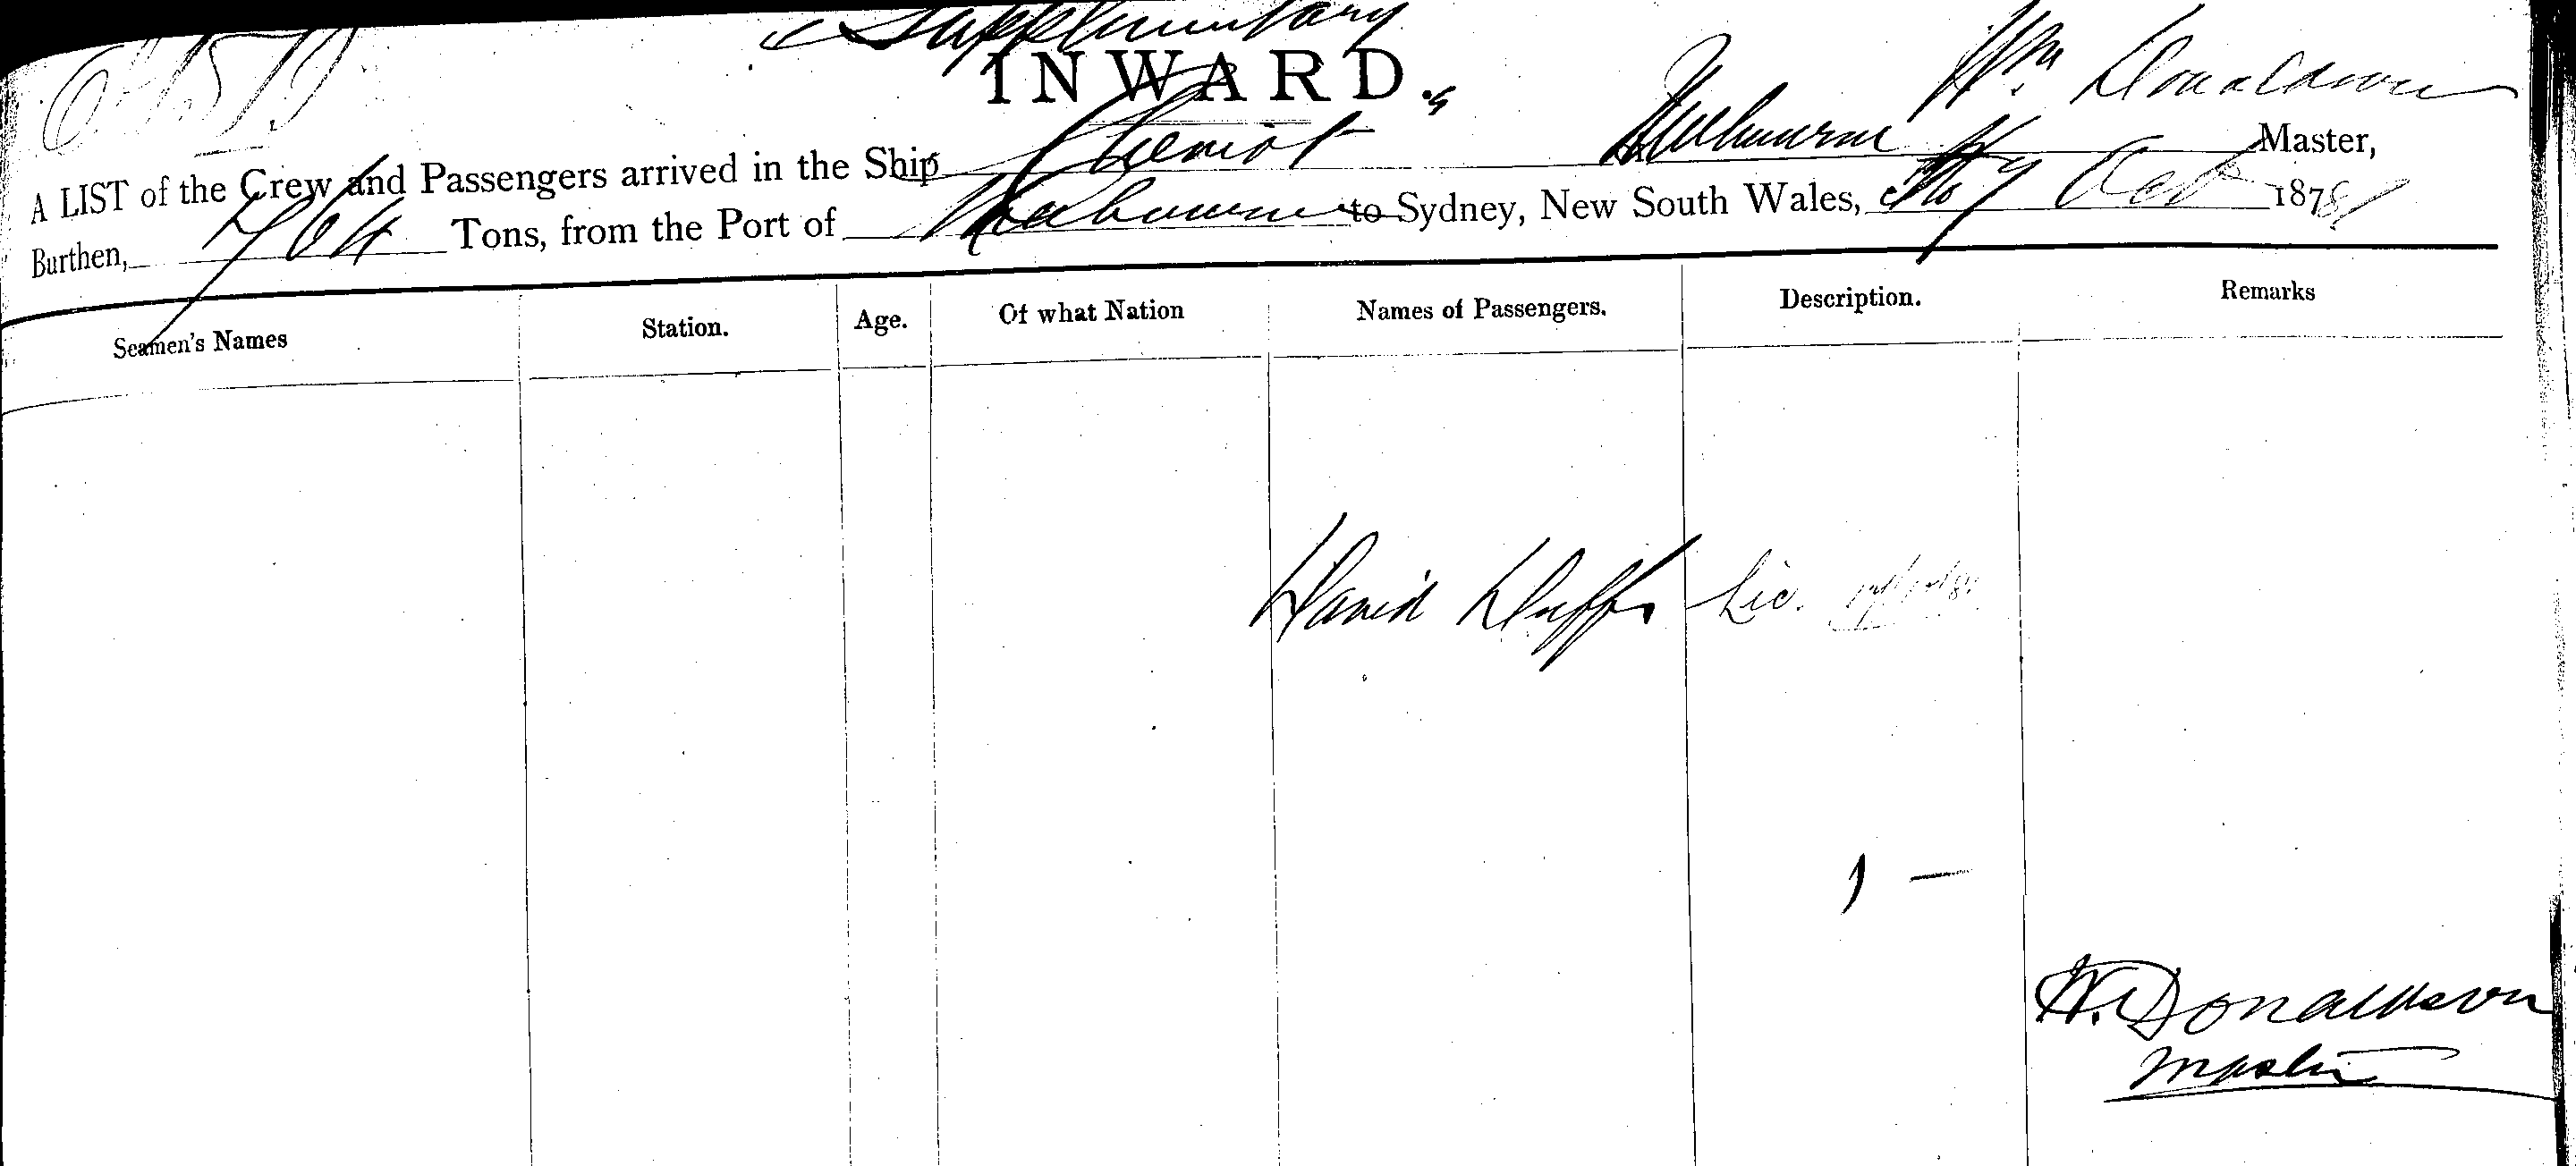 Supplementary
INWARD.
A LIST of the Crew and Passengers arrived in the Ship Cheviot Melbourne Wm Donaldson Master,
Burthen, 764 Tons, from the Port of Melbourne to Sydney, New South Wales, Oct 1878
Seamen's Names Station. Age. Of what Nation Names of Passengers. Description. Remarks
David Duffs Lic.
1 —
W. Donaldson
Master